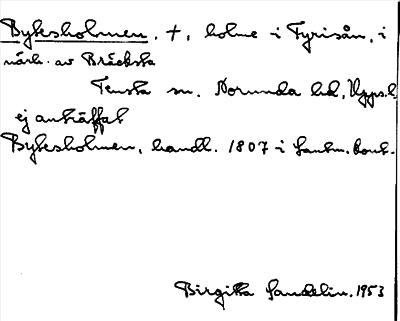 Bykesholmen, †, holme i Fyrisån, i
närh. av Bräcksta
Tensta sn. Norunda hd, Upps.l.
ej anträffat
Bykesholmen, handl. 1807 i Lantm.kont.
Birgitta Sandelin. 1953